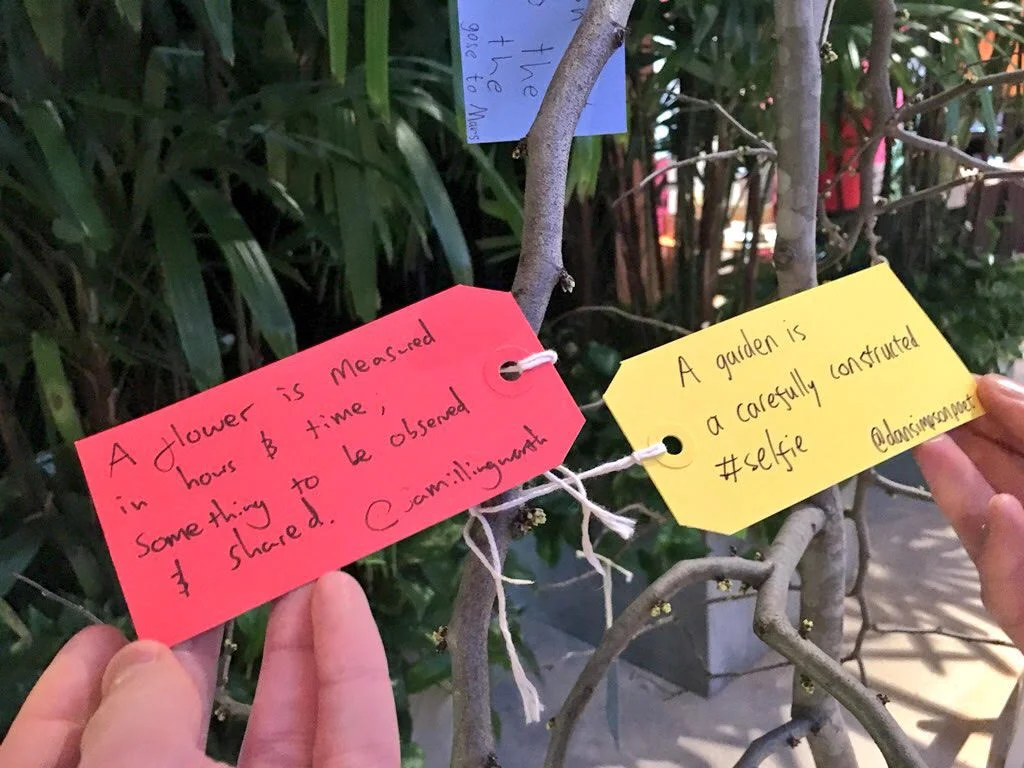 the
the
gose to Mars
A flower is measured
in hours & time;
something to be observed
& shared. @iamillingworth
A garden is
a carefully constructed
#selfie
@dansimpsonpoet